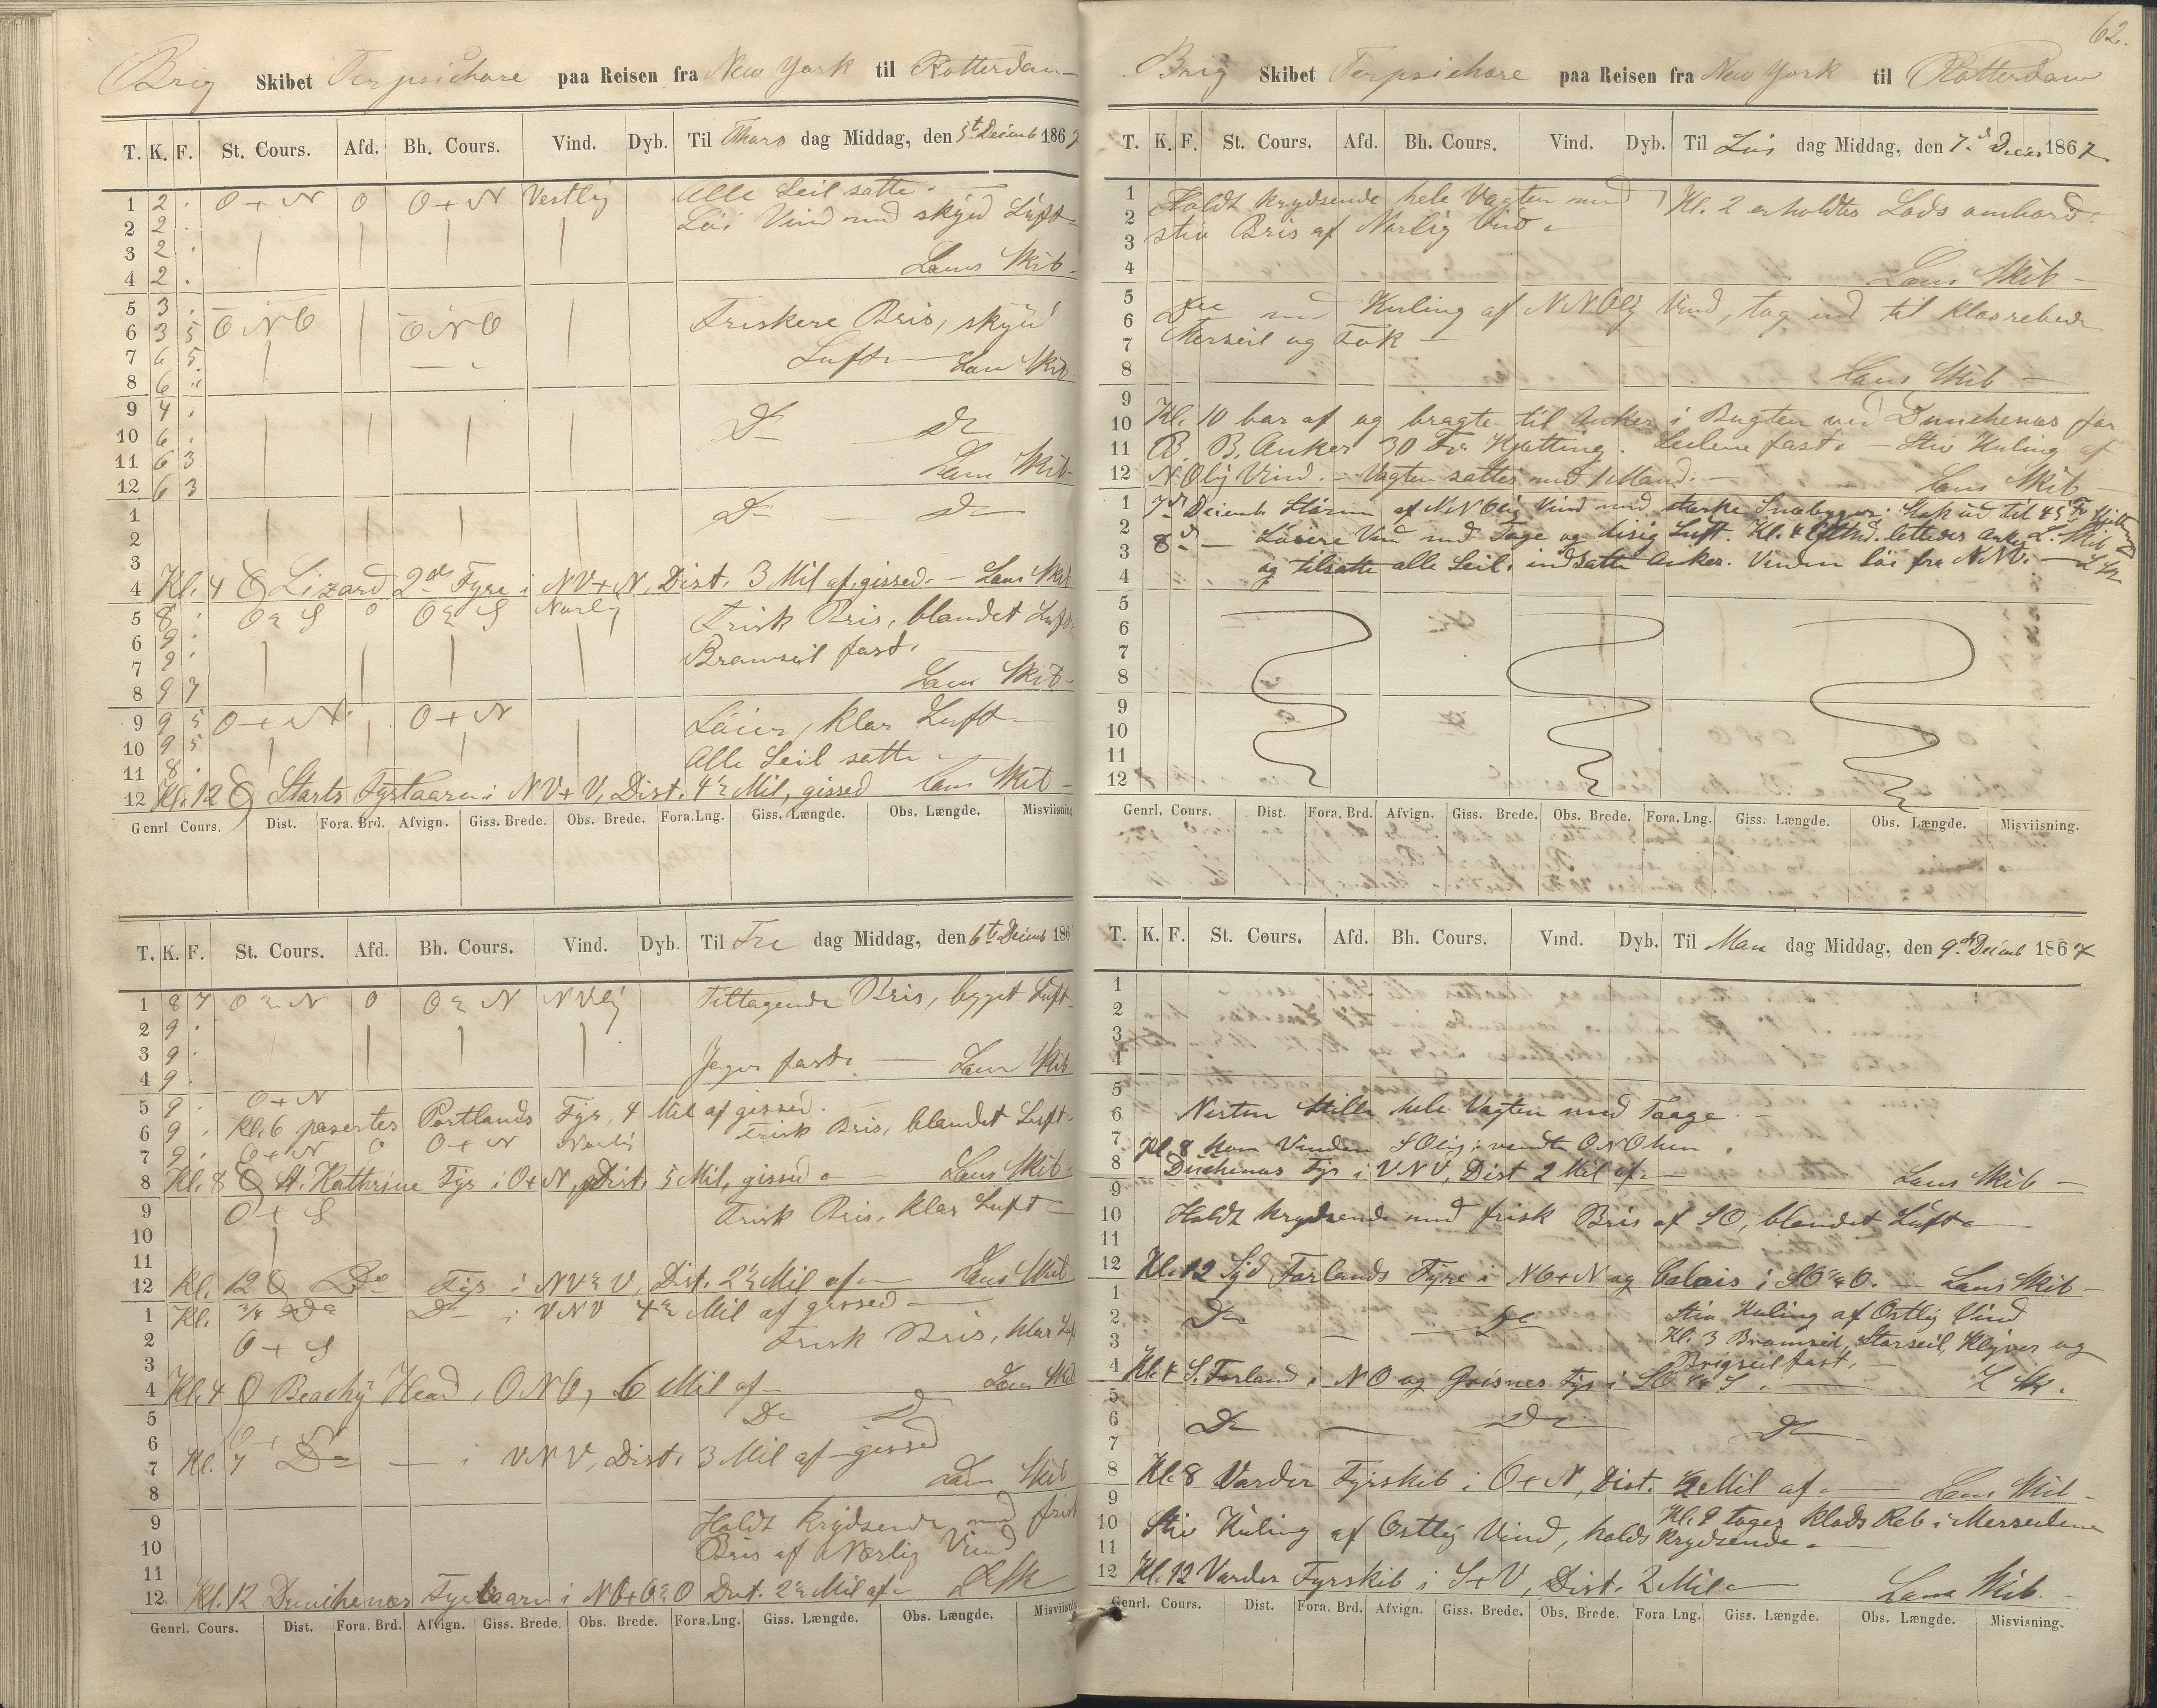 Brig Skibet Terpsichore paa Reisen fra New York til Rotterdam
T. K. F. St. Cours. Afd. Bh. Cours. Vind. Dyb. Til Thors dag Middag, den 5t Decemb 1867
1 2 . O + N O O + N Vestlig Alle Seil satte.
2 2 . Löi Vind med skyed Luft
3 2 .
4 2 . Lens Skib
5 3 .
6 3 5 ONO ONO Friskere Bris, skyed
7 6 5 Luft Lens Skib
8 6 ..
9 4 . Do Do
10 6 .
11 6 3 Lens Skib
12 6 3
1 Do Do
2
3
4 Kl. 4 Lizard 2de Fyre i NV+N, Dist. 3 Mil af, gissed. Lens Skib
5 8 . O ½ S O O ½ S Norlig Frisk Bris, blandet Luft
6 9 .
7 9 . Bramseil fast.
8 9 7 Lens Skib
9 9 5 O + N O + N Löier, klar Luft
10 9 5 Alle Seil satte
11 8 .
12 Kl. 12 Starts Fyrtaarn i NV+V, Dist. 4½ Mil, gissed Lens Skib
Genrl. Cours. Dist. Fora. Brd. Afvign. Giss. Brede. Obs. Brede. Fora.Lng. Giss. Længde. Obs. Længde. Misviisning
T. K. F. St. Cours. Afd. Bh. Cours. Vind. Dyb. Til Fre dag Middag, den 6t Decemb 186
1 8 7 O ½ N O O ½ N NVlig Tiltagende Bris, bygget Luft
2 9 .
3 9 . Jager fast. Lens Skib
4 9 .
5 9 . O + N
6 9 . Kl. 6 paserter Portlands Fyr, 4 Mil af gissed. Frisk Bris, blandet Luft
7 9 . O + N O O + N Norlig
8 Kl. 8 St. Kathrine Fyr i O+N, Dist. 5 Mil, gissed Lens Skib
9 O + S Frisk Bris, klar Luft
10
11
12 Kl. 12 Do Fyr i NV½V, Dist. 2½ Mil af Lens Skib
1 Kl. ¾ Do Do i VNV 4½ Mil af gissed
2 O + S Frisk Bris, klar Luft
3
4 Kl. 4 Beachy Head i ONO, 6 Mil af Lens Skib
5 Do Do
6 O + N
7 Kl. 7 Do i VNV, Dist. 3 Mil af gissed
8 Lens Skib
9 Holdt krydsende med frisk
10 Bris af Nørlig Vind
11
12 Kl. 12 Dunchenæs Fyrtaarn i NO+O½O Dist. 2½ Mil af L Sk
Genrl. Cours. Dist. Fora. Brd. Afvign. Giss. Brede. Obs. Brede. Fora.Lng. Giss. Længde. Obs. Længde. Misviisning
62.
Brig Skibet Terpsichore paa Reisen fra New York til Rotterdam
T. K. F. St. Cours. Afd. Bh. Cours. Vind. Dyb. Til Löv dag Middag, den 7d Decbr 1867.
1 Holdt krydsende hele Vagten med Kl. 2 erholdtes Lods ombord.
2 stiv Bris af Norlig Vind
3
4 Lens Skib
5 Do med Kuling af NNOlig Vind, tog ind til klosrebede
6
7 Merseil og Fok
8 Lens Skib
9
10 Kl. 10 bar af og bragte til Anker i Bugten ved Dunchenæs for
11 B. B. Anker 30 Fv. Kjetting. Seilene fast. Stiv Kuling af
12 NOlig Vind. Vagten sattes med 1 Mand. Lens Skib
1 7d Decemb Storm af NNOlig Vind med stærke Snebyger. Stak ud til 45 Fv Kjetting
2 L. Skib
3 8d Löiere Vind med Tage og disig Luft. Kl. 4 Eftmd. lettedes Anker
4 og tilsatte alle Seil, indsatte Anker. Vinden löi fra NNV. L Sk
5
6
7
8
9
10
11
12
Genrl. Cours. Dist. Fora. Brd. Afvign. Giss. Brede. Obs. Brede. Fora. Lng. Giss. Længde. Obs. Længde. Misviisning.
T. K. F. St. Cours. Afd. Bh. Cours. Vind. Dyb. Til Man dag Middag, den 9de Decemb 1867
1
2
3
4
5
6 Nesten Stille hele Vagten med Taage.
7 Kl. 8 kom Vinden SOlig; vendte ONO hen.
8 Duchenæs Fyr i VNV, Dist 2 Mil af. Lens Skib
9
10 Holdt krydsende med frisk Bris af SO, blandet Luft
11
12 Kl. 12 Syd Forlands Fyre i NO+N og Calais i SO¾O. Lens Skib
1 Stiv Kuling af Ostlig Vind
2 Do Do
3 Kl. 3 Bramseil, Storseil, Klyver og
Brigseil fast.
4 Kl. 4 S. Forland i NO og Grisnes Fyr i SO ¾ S. L Sk.
5
6 Do Do Do
7
8 Kl. 8 Varder Fyrskib i O+N, Dist. 2 Mil af Lens Skib
9 Kl. 9 toges Klods Reb i Merseilene
10 Stiv Kuling af Ostlig Vind, holds krydsende.
11
12 Kl. 12 Varder Fyrskib i S+V, Dist. 2 Mil Lens Skib.
Genrl. Cours. Dist. Fora. Brd. Afvign. Giss. Brede. Obs. Brede. Fora Lng. Giss. Længde. Obs. Længde. Misvisning.